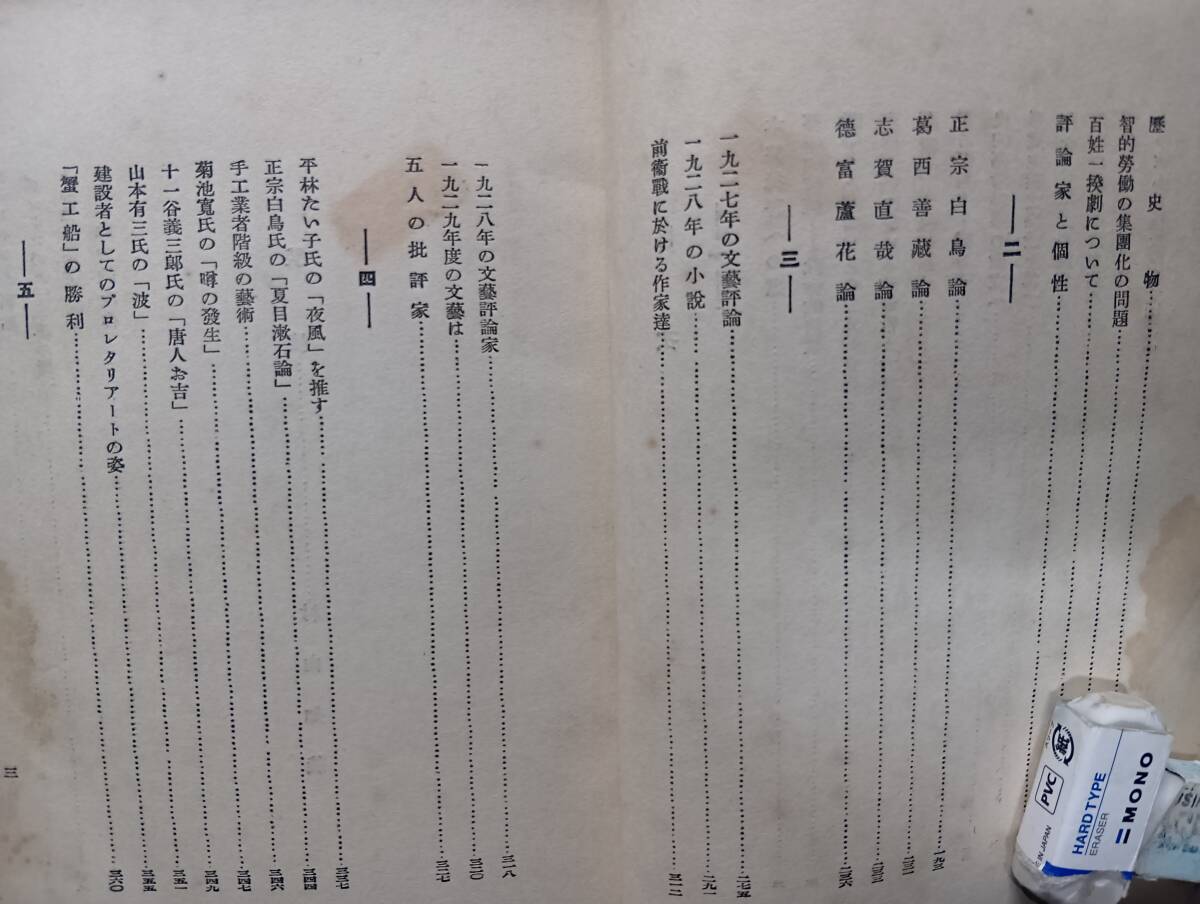 歷史物
智的勞働の集團化の問題
百姓一揆劇について
評論家と個性
二
正宗白鳥論
葛西善藏論
志賀直哉論
德富蘆花論
三
一九二七年の文藝評論 二七五
一九二八年の小說 二九一
前衞戰に於ける作家達 三一二
一九二八年の文藝評論家 三一八
一九二九年度の文藝は 三二〇
五人の批評家 三二七
四
平林たい子氏の「夜風」を推す 三三七
正宗白鳥氏の「夏目漱石論」 三四四
手工業者階級の藝術 三四六
菊池寬氏の「噂の發生」 三四七
十一谷義三郞氏の「唐人お吉」 三四九
山本有三氏の「波」 三五一
建設者としてのプロレタリアートの姿 三五五
「蟹工船」の勝利 三六〇
五
三
紙
PVC
HARD TYPE
ERASER
MONO
IN JAPAN